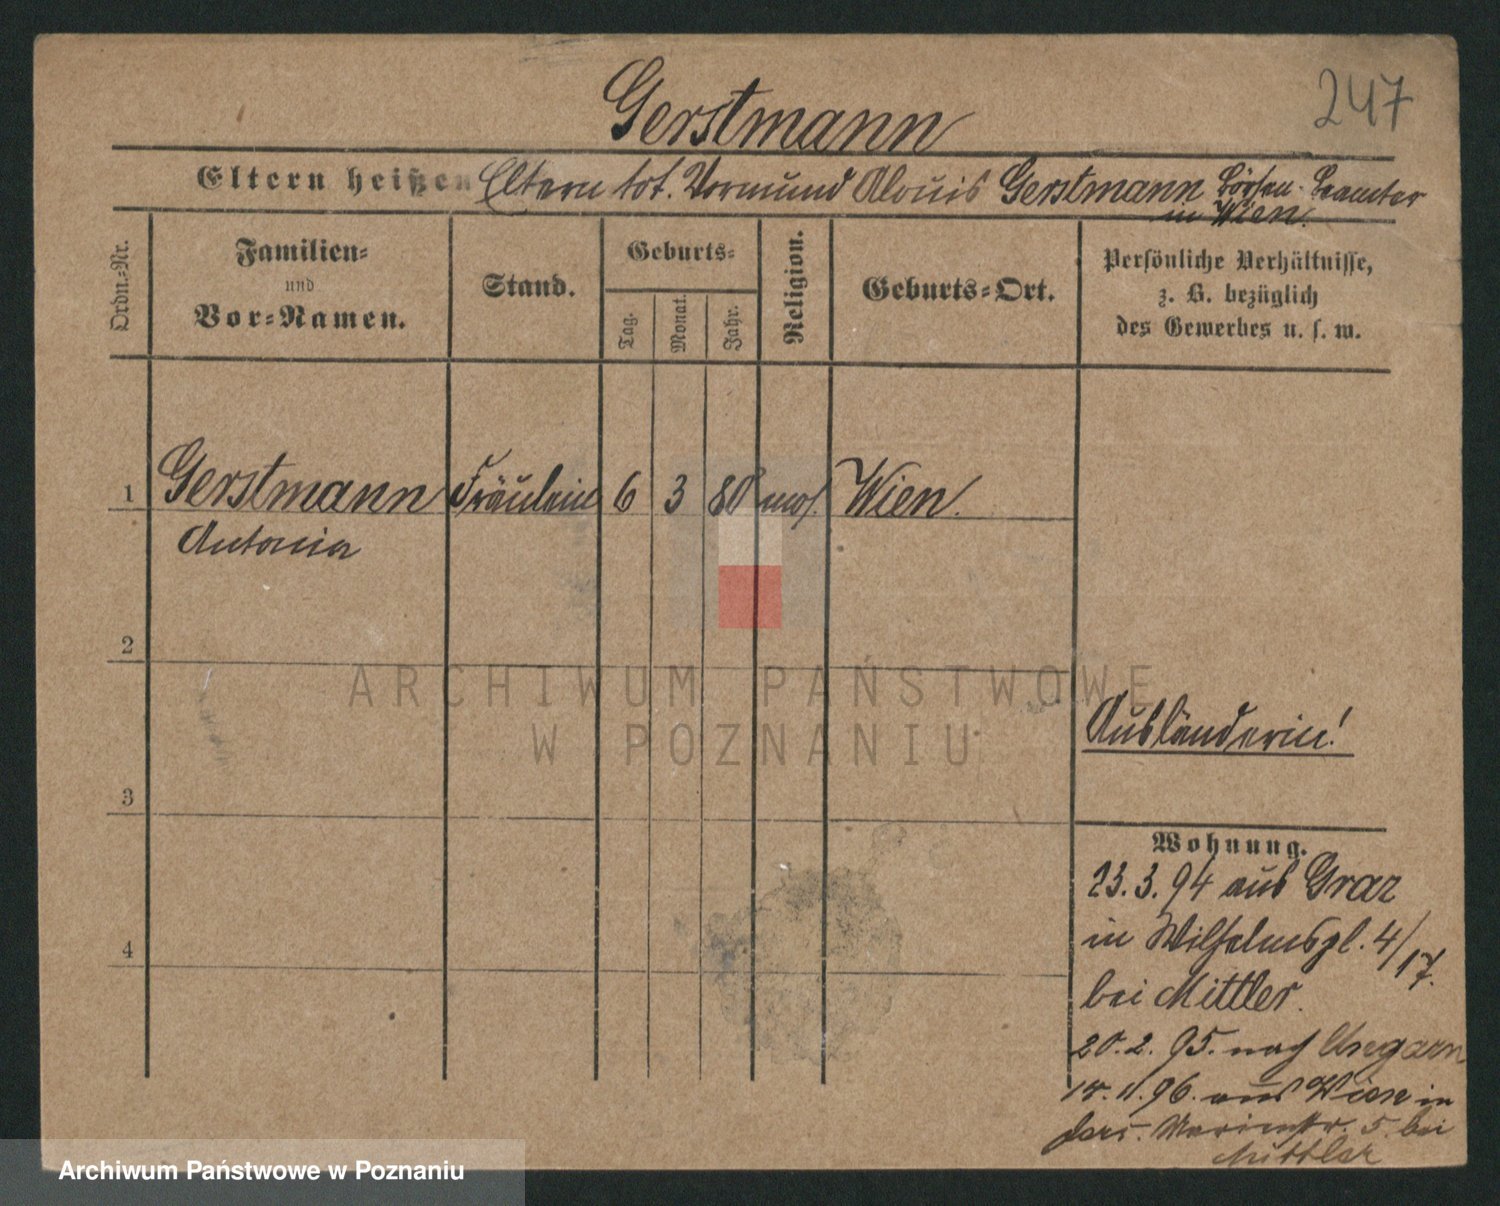 247
Gerstmann
Eltern heißen Eltern tot. Vormund Alouis Gerstmann Börsen-Beamter
in Wien.
Ordn.=Nr.
Familien=
und
Vor=Namen.
Stand.
Geburts=
Tag.
Monat.
Jahr.
Religion.
Geburts=Ort.
Persönliche Verhältnisse,
z. B. bezüglich
des Gewerbes u. s. w.
1 Gerstmann Fräulein 6 3 80 mos. Wien.
Antonia
2
3
4
Ausländerin!
Wohnung.
23. 3. 94 aus Graz
in Wilhelmspl. 4/17.
bei Mittler.
20. 2. 95. nach Ungarn
11. 96. aus Wien in
5 bei
Mittler
ARCHIWUM PAŃSTWOWE
W POZNANIU
Archiwum Państwowe w Poznaniu